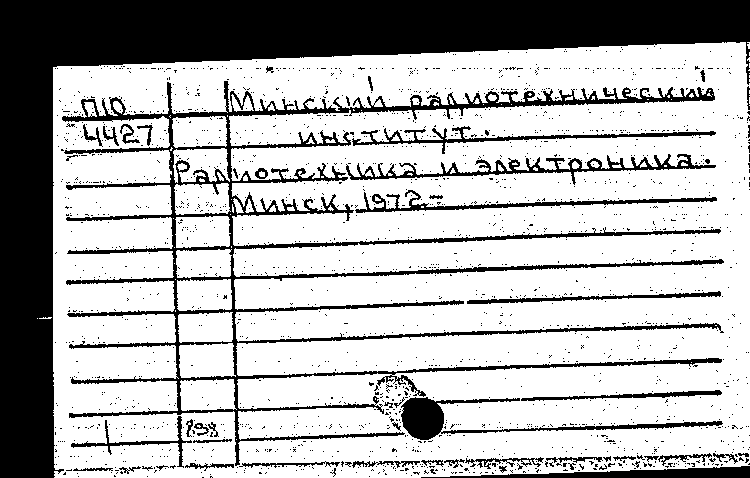 П10 Минский радиотехнический
4427 институт.
Радиотехника и электроника.
Минск, 1972-